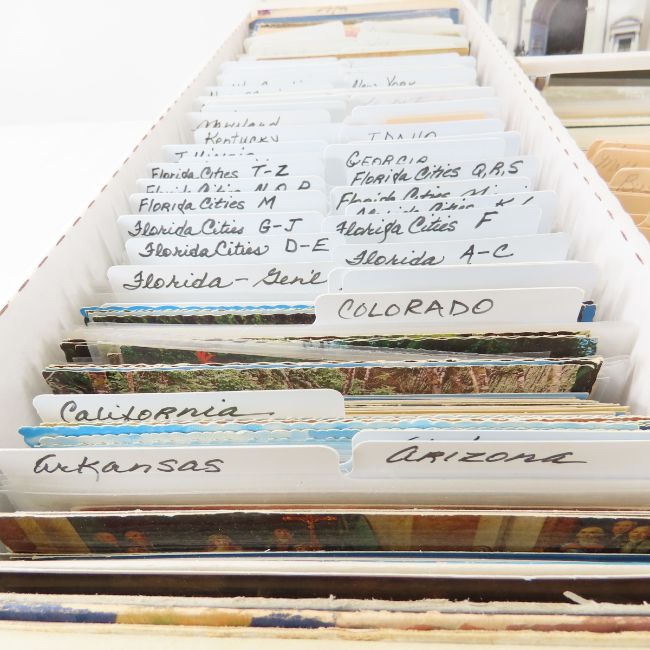 New York
Maryland
Kentucky
IDAHO
Illinois
GEORGIA
Florida Cities T-Z
Florida Cities Q,R,S
Florida Cities N,O,P
Florida Cities M
Florida Cities
Florida Cities
Florida Cities G-J
Florida Cities F
Florida Cities D-E
Florida A-C
Florida - Gen'l
COLORADO
California
Arkansas
Arizona